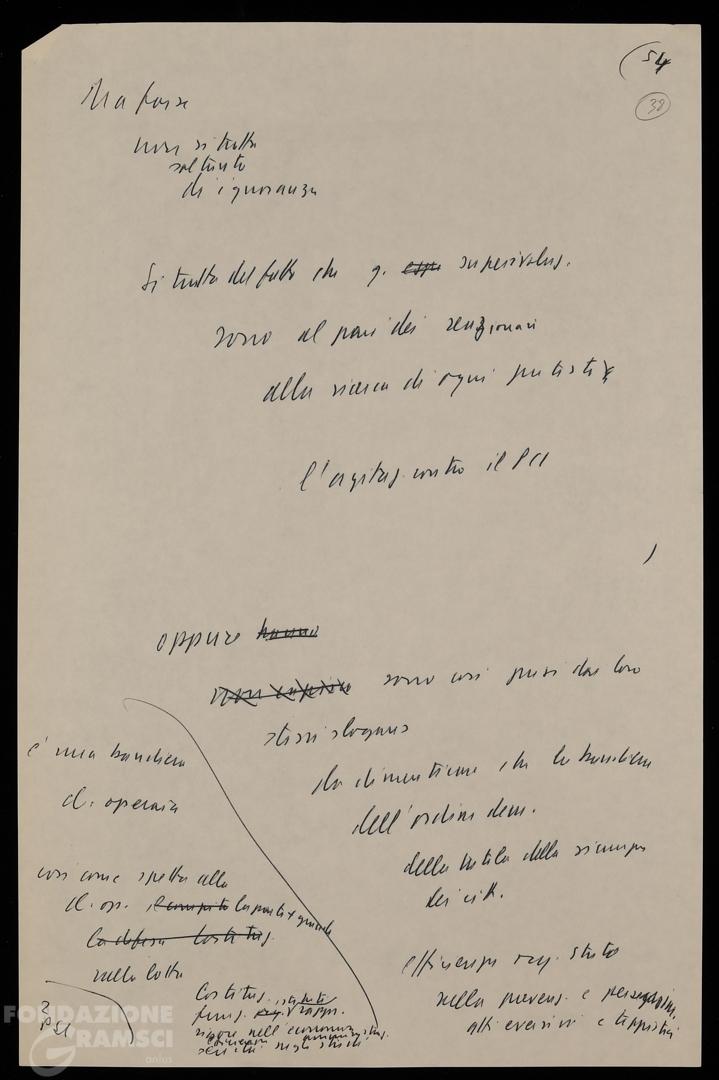 (54
38
Ma forse
non si tratta
soltanto
di ignoranza
Si tratta del fatto che q. superivoluz.
sono al pari dei reazionari
alla ricerca di ogni pretesto
l'agitaz. contro il PCI
)
oppure hanno
sono così presi dai loro
stessi slogans
da dimenticare che la bandiera
dell'ordine dem.
della tutela della sicurezza
dei citt.
efficienza org. Stato
nella prevenz. e
atti eversivi e teppistici
è una bandiera
cl. operaia
così come spetta alla
cl. op. la parte + grande
La difesa Costituz.
nella lotta
Costituz.
funz.
rigore nell'economia
negli studi
3
PSI
FONDAZIONE
GRAMSCI
onlus